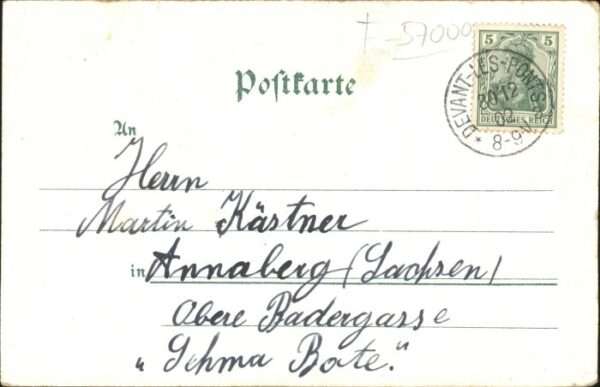 + 57000
5 5
DEUTSCHES REICH
* DEVANT-LES-PONTS
30 12
02
8-9V
Postkarte
An
Herrn
Martin Kästner
in Annaberg (Sachsen)
Obere Badergasse
„Sehma Bote."